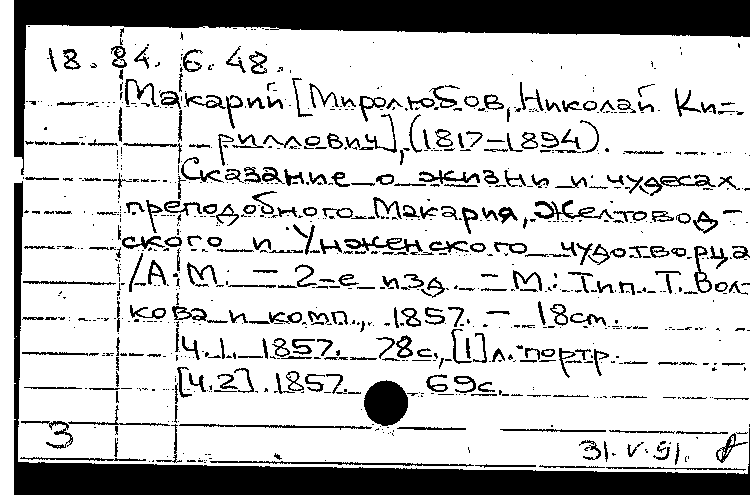 18. 84. 6. 48.
Макарий [Миролюбов, Николай Ки-
риллович], (1817-1894).
Сказание о жизни и чудесах
преподобного Макария, Желтовод-
ского и Унженского чудотворца
/А.М. - 2-е изд. - М.: Тип. Т. Вол-
кова и комп., 1857. - 18 cm.
Ч.1. 1857. 78с., [1] л. портр.
[Ч.2]. 1857. 69с.
3
31.V.91.